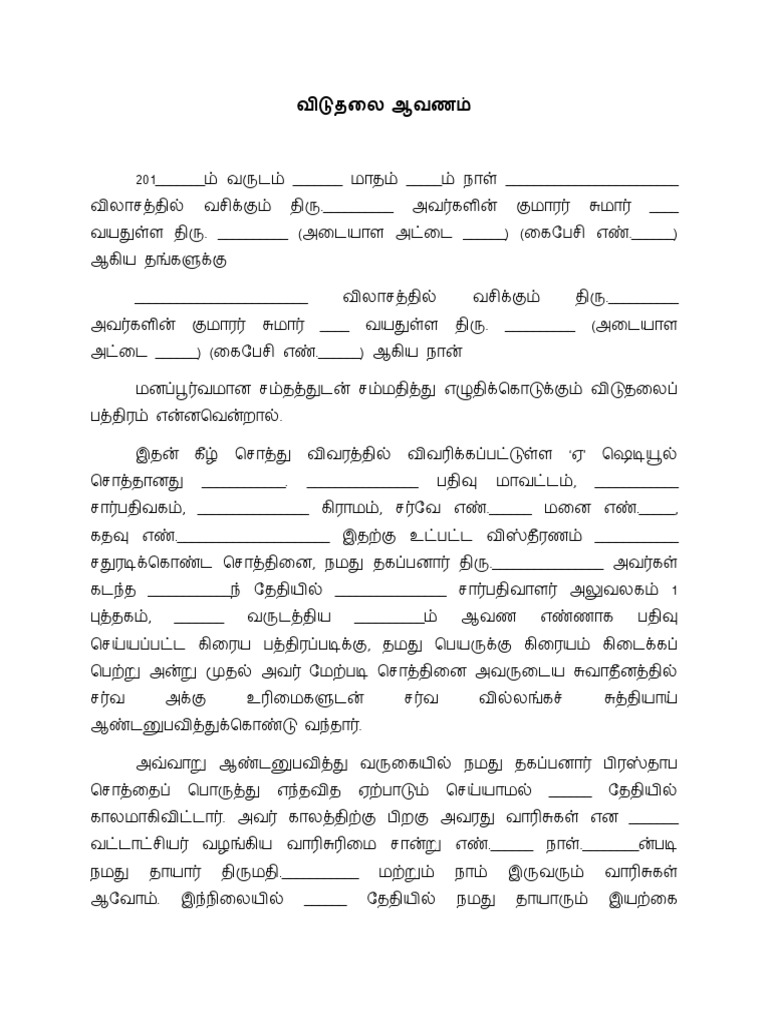 விடுதலை ஆவணம்
201_______ம் வருடம் _______ மாதம் _____ம் நாள் ________________________
விலாசத்தில் வசிக்கும் திரு.__________ அவர்களின் குமாரர் சுமார் ____
வயதுள்ள திரு. __________ (அடையாள அட்டை ______) (கைபேசி எண்.______)
ஆகிய தங்களுக்கு
________________________ விலாசத்தில் வசிக்கும் திரு.__________
அவர்களின் குமாரர் சுமார் ____ வயதுள்ள திரு. __________ (அடையாள
அட்டை ______) (கைபேசி எண்.______) ஆகிய நான்
மனப்பூர்வமான சம்தத்துடன் சம்மதித்து எழுதிக்கொடுக்கும் விடுதலைப்
பத்திரம் என்னவென்றால்.
இதன் கீழ் சொத்து விவரத்தில் விவரிக்கப்பட்டுள்ள ‘ஏ’ ஷெடியூல்
சொத்தானது ____________. ________________ பதிவு மாவட்டம், ____________
சார்பதிவகம், ________________ கிராமம், சர்வே எண்.______ மனை எண்._____,
கதவு எண்._____________________ இதற்கு உட்பட்ட விஸ்தீரணம் ____________
சதுரடிக்கொண்ட சொத்தினை, நமது தகப்பனார் திரு.________________ அவர்கள்
கடந்த ____________ந் தேதியில் ________________ சார்பதிவாளர் அலுவலகம் 1
புத்தகம், _______ வருடத்திய __________ம் ஆவண எண்ணாக பதிவு
செய்யப்பட்ட கிரைய பத்திரப்படிக்கு, தமது பெயருக்கு கிரையம் கிடைக்கப்
பெற்று அன்று முதல் அவர் மேற்படி சொத்தினை அவருடைய சுவாதீனத்தில்
சர்வ அக்கு உரிமைகளுடன் சர்வ வில்லங்கச் சுத்தியாய்
ஆண்டனுபவித்துக்கொண்டு வந்தார்.
அவ்வாறு ஆண்டனுபவித்து வருகையில் நமது தகப்பனார் பிரஸ்தாப
சொத்தைப் பொருத்து எந்தவித ஏற்பாடும் செய்யாமல் ______ தேதியில்
காலமாகிவிட்டார். அவர் காலத்திற்கு பிறகு அவரது வாரிசுகள் என _______
வட்டாட்சியர் வழங்கிய வாரிசுரிமை சான்று எண்.______ நாள்.________ன்படி
நமது தாயார் திருமதி.___________ மற்றும் நாம் இருவரும் வாரிசுகள்
ஆவோம். இந்நிலையில் ______ தேதியில் நமது தாயாரும் இயற்கை